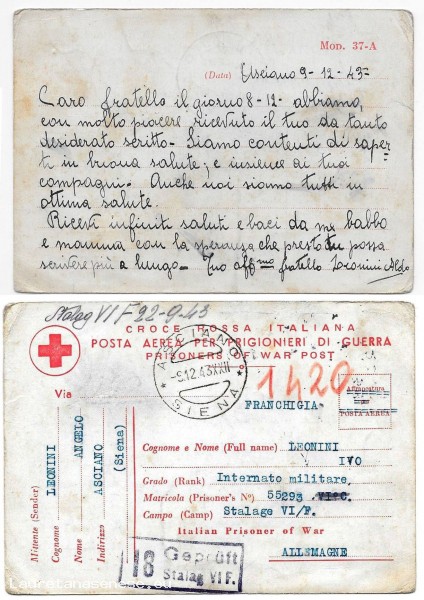 Mod. 37-A
(Data) Asciano 9-12-43-
Caro fratello il giorno 8-12- abbiamo,
con molto piacere ricevuto il tuo da tanto
desiderato scritto- Siamo contenti di saper
ti in buona salute; e insieme ai tuoi
compagni. Anche noi siamo tutti in
ottima salute.
Ricevi infiniti saluti e baci da me babbo
e mamma con la speranza che presto tu possa
scrivere più a lungo- Tuo aff.mo fratello Leonini Aldo
Stalag VI F 22-9-43
CROCE ROSSA ITALIANA
POSTA AEREA PER PRIGIONIERI DI GUERRA
PRISONERS OF WAR POST
ASCIANO
-9.12.43XXII
SIENA
1420
Via
FRANCHIGIA
POSTA AEREA
Mittente (Sender)
Cognome LEONINI
Nome ANGELO
Indirizzo ASCIANO
(Siena)
Cognome e Nome (Full name) LEONINI
IVO
Grado (Rank) Internato militare
Matricola (Prisoner's Nº) 55293
Campo (Camp) Stalage VI/F.
Italian Prisoner of War
ALLEMAGNE
18 Geprüft
Stalag VI F.